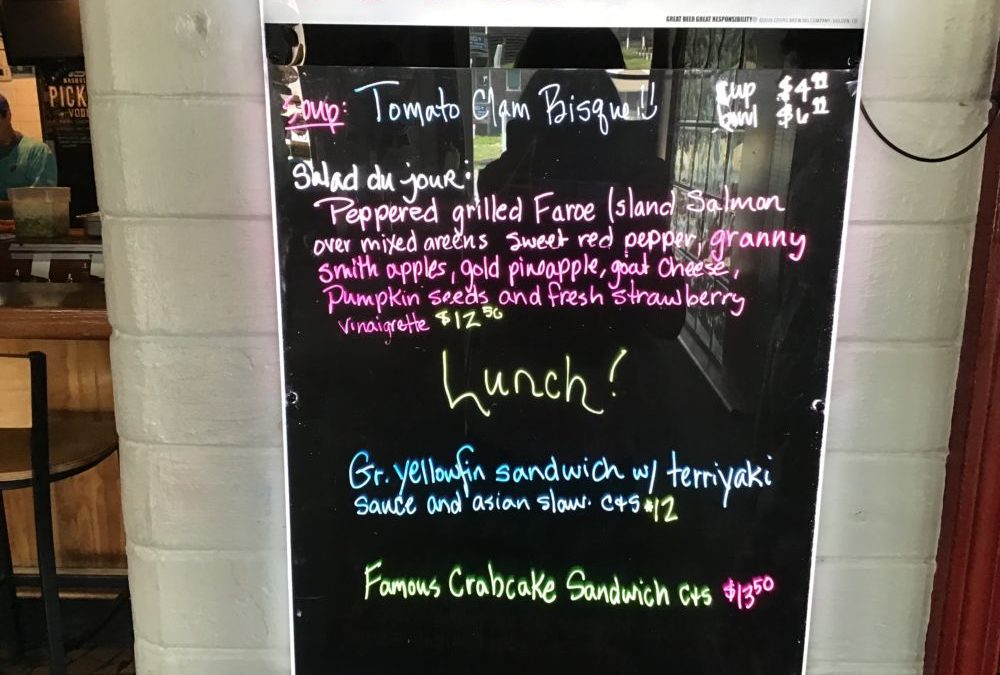 GREAT BEER GREAT RESPONSIBILITY® ©2018 COORS BREWING COMPANY, GOLDEN, CO
PICK
VODK
Soup: Tomato Clam Bisque!! Cup $4.99
bowl $6.99
Salad du jour:
Peppered grilled Faroe Island Salmon
over mixed greens sweet red pepper, granny
smith apples, gold pineapple, goat cheese,
pumpkin seeds and fresh strawberry
vinaigrette $12.50
Lunch!
Gr. yellowfin sandwich w/ terriyaki
sauce and asian slaw. c+s $12
Famous Crabcake Sandwich c+s $13.50